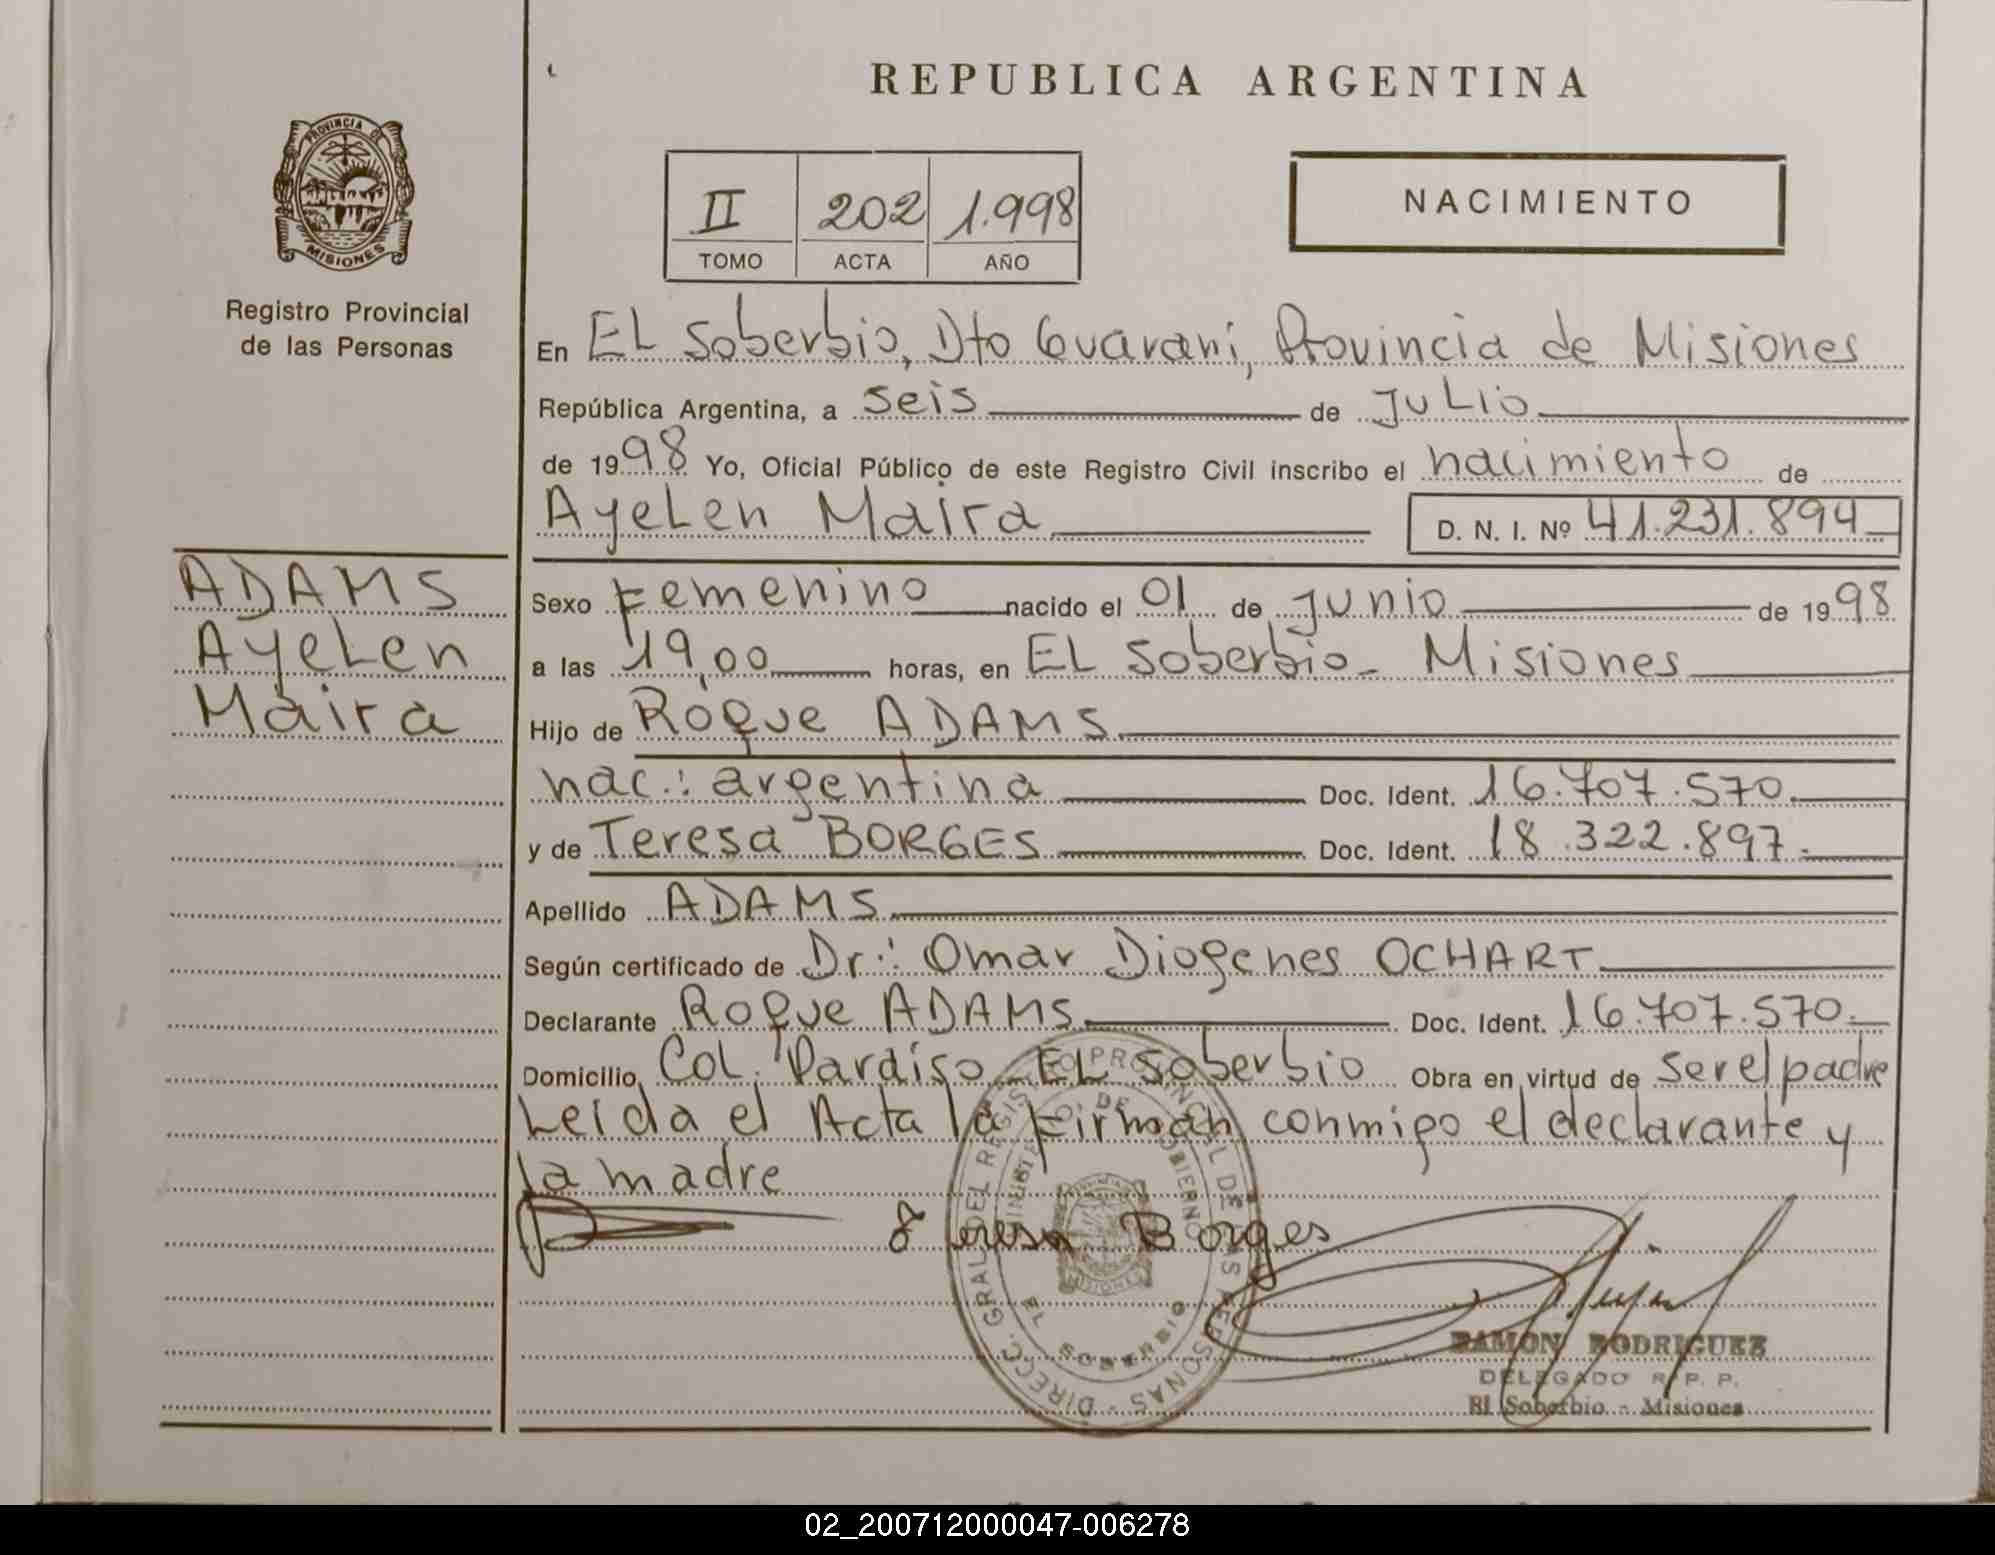 REPUBLICA ARGENTINA
PROVINCIA DE
MISIONES
Registro Provincial
de las Personas
II 202 1.998
TOMO ACTA AÑO
NACIMIENTO
En EL Soberbio, Dto Guaraní, Provincia de Misiones
República Argentina, a seis de JuLio
de 1998 Yo, Oficial Público de este Registro Civil inscribo el nacimiento de
AyeLen Maira D. N. I. Nº 41.231.894
ADAMS
AyeLen
Maira
Sexo Femenino nacido el 01 de Junio de 1998
a las 19,00 horas, en EL Soberbio - Misiones
Hijo de Roque ADAMS
nac.: argentina Doc. Ident. 16.707.570.
y de Teresa BORGES Doc. Ident. 18.322.897.
Apellido ADAMS
Según certificado de Dr.: Omar Diogenes OCHART
Declarante Roque ADAMS Doc. Ident. 16.707.570.
Domicilio CoL. Pardiso EL Soberbio Obra en virtud de ser el padre
Leida el Acta la firman conmigo el declarante y
la madre
Teresa Borges
DIRECC. GRAL DEL REGISTRO PROVINCIAL DE LAS PERSONAS
MINISTERIO DE GOBIERNO
MISIONES
EL SOBERBIO
RAMON RODRIGUEZ
DELEGADO R. P. P.
El Soberbio - Misiones
02_200712000047-006278